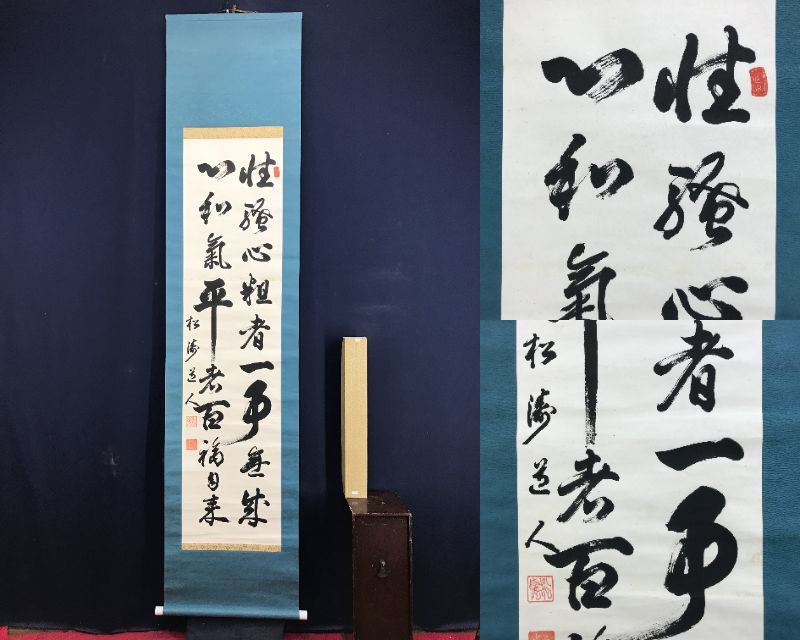 性騷心粗者一事無成
心和氣平者百福自来
松濤道人
性騷心
心和氣
者一事
者百
松濤道人